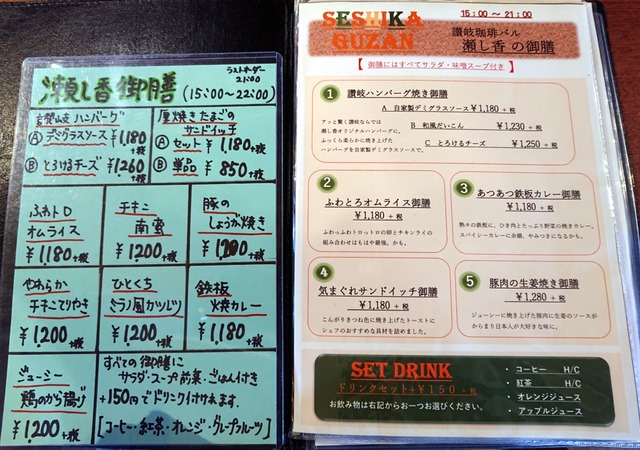 ラストオーダー
21:00
瀬し香御膳
(15:00〜22:00)
讃岐ハンバーグ
Ⓐ デミグラスソース ¥1,180+税
Ⓑ とろけるチーズ ¥1,260+税
厚焼きたまごの
サンドイッチ
Ⓐ セット ¥1,180+税
Ⓑ 単品 ¥850+税
ふわトロ
オムライス
¥1,180+税
チキン
南蛮
¥1,200+税
豚の
しょうが焼き
¥1,200+税
やわらか
チキンてりやき
¥1,200+税
ひとくち
ミラノ風カツレツ
¥1,200+税
鉄板
焼カレー
¥1,180+税
ジューシー
鶏のから揚げ
¥1,200+税
すべての御膳に
サラダ・スープ・前菜・ごはん付き
+150円でドリンク付けれます。
[コーヒー・紅茶・オレンジ・グレープフルーツ]
SESHIKA
GUZAN
15:00 〜 21:00
讃岐珈琲バル
瀬し香 の御膳
【 御膳にはすべてサラダ・味噌スープ付き 】
1 讃岐ハンバーグ焼き御膳
A 自家製デミグラスソース ¥1,180 + 税
B 和風だいこん ¥1,230 + 税
C とろけるチーズ ¥1,250 + 税
アッと驚く讃岐ならでは
瀬し香オリジナルハンバーグに、
ふっくら柔らかに焼き上げた
ハンバーグを自家製デミグラスソースで。
2 ふわとろオムライス御膳
¥1,180 + 税
ふわっふわトロットロの卵とチキンライの
組み合わせはもはや最強。かも。
3 あつあつ鉄板カレー御膳
¥1,180 + 税
熱々の鉄板に、ひき肉とたっぷり野菜の焼きカレー。
スパイシーカレーに余韻、やみつきになるかも。
4 気まぐれサンドイッチ御膳
¥1,180 + 税
こんがりきつね色に焼き上げたトーストに
シェフのおすすめな具材を詰めました。
5 豚肉の生姜焼き御膳
¥1,280 + 税
ジューシーに焼き上げた豚肉に生姜のソースが
からまり日本人が大好きな味に。
SET DRINK
ドリンクセット+¥150 -
お飲み物は右記からお一つお選びください。
・コーヒー H/C
・紅茶 H/C
・オレンジジュース
・アップルジュース